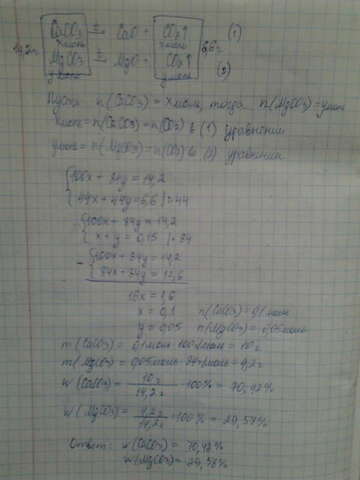 14,2г CaCO₃ t= CaO + CO₂↑ 6,6г (1)
x моль x моль
MgCO₃ t= MgO + CO₂↑ (2)
y моль y моль
Пусть n(CaCO₃) = x моль, тогда n(MgCO₃) = y моль
x моль = n(CaCO₃) = n(CO₂) в (1) уравнении
y моль = n(MgCO₃) = n(CO₂) в (2) уравнении
{100x + 84y = 14,2
{44x + 44y = 6,6 |:44
{100x + 84y = 14,2
{x + y = 0,15 |·84
- {100x + 84y = 14,2
{84x + 84y = 12,6
16x = 1,6
x = 0,1 n(CaCO₃) = 0,1 моль
y = 0,05 n(MgCO₃) = 0,05 моль
m(CaCO₃) = 0,1 моль·100г/моль = 10г
m(MgCO₃) = 0,05 моль·84г/моль = 4,2г
w(CaCO₃) = 10г/14,2г ·100% = 70,42%
w(MgCO₃) = 4,2г/14,2г ·100% = 29,58%
Ответ: w(CaCO₃) = 70,42%
w(MgCO₃) = 29,58%